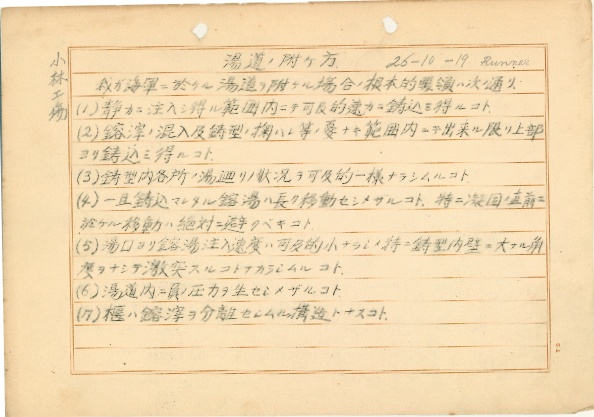 小林工場
湯道ノ附ケ方 26-10-19 Runner
我ガ海軍ニ於ケル湯道ヲ附ケル場合ノ根本的要領ハ次ノ通リ.
(1) 静カニ注入シ得ル範囲内ニテ可及的速カニ鋳込ミ得ルコト.
(2) 鎔滓ノ混入及鋳型ノ掬ハレ等ノ憂ナキ範囲内ニテ出来ル限リ上部
ヨリ鋳込ミ得ルコト.
(3) 鋳型内各所ノ湯廻リノ状況ヲ可及的一様ナラシムルコト.
(4) 一旦鋳込マレタル鎔湯ハ長ク移動セシメザルコト. 特ニ凝固ノ直前ニ
於ケル移動ハ絶対ニ避クベキコト.
(5) 湯口ヨリ鎔湯注入速度ハ可及的小ナラシメ特ニ鋳型内壁ニ大ナル角
度ヲナシテ激突スルコトナカラシムルコト.
(6) 湯道内ニ負ノ圧力ヲ生セシメザルコト.
(7) 堰ハ鎔滓ヲ分離セシムル構造トナスコト.